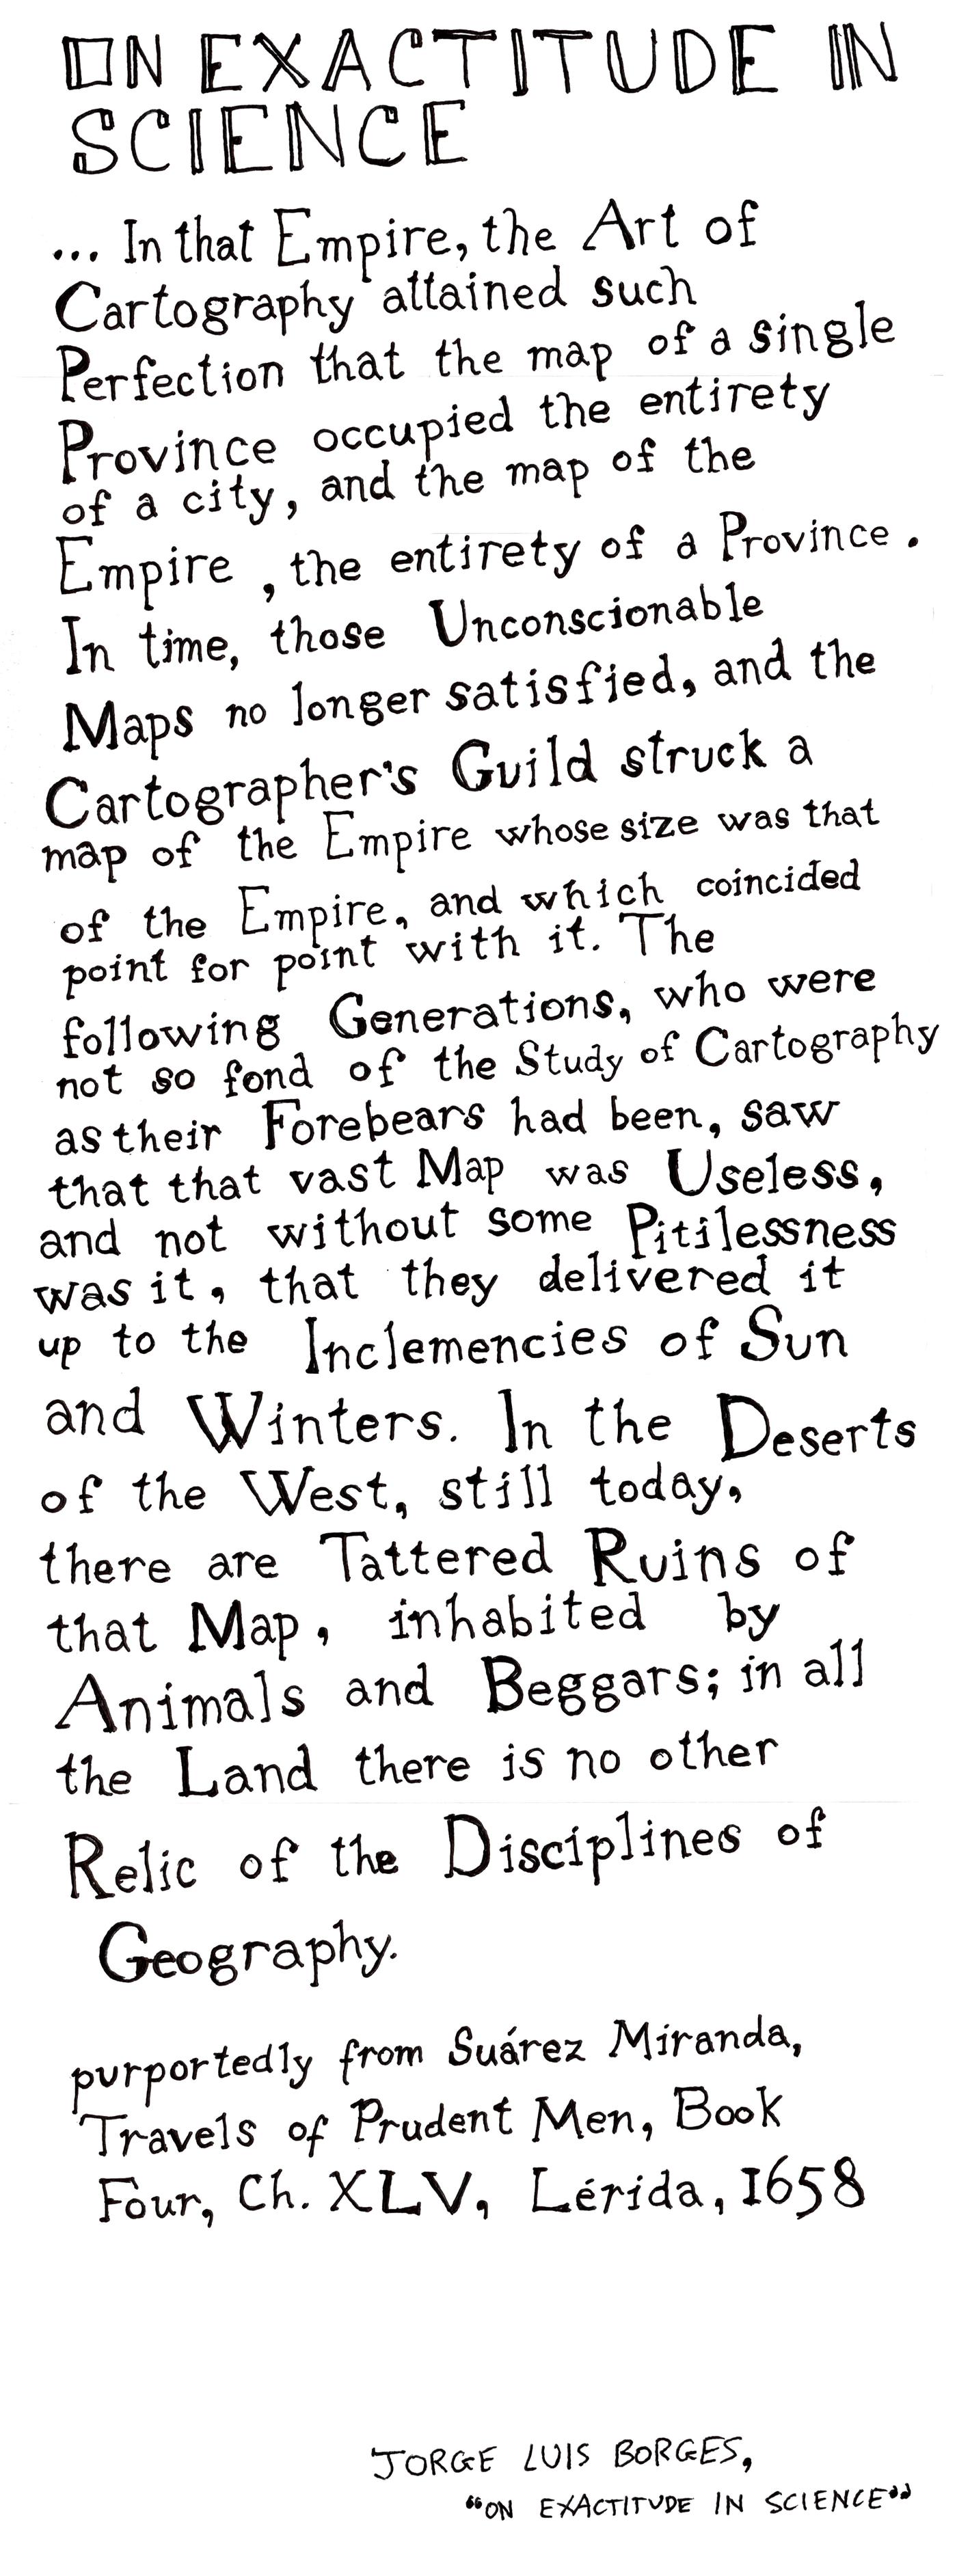 ON EXACTITUDE IN
SCIENCE
... In that Empire, the Art of
Cartography attained such
Perfection that the map of a single
Province occupied the entirety
of a city, and the map of the
Empire, the entirety of a Province.
In time, those Unconscionable
Maps no longer satisfied, and the
Cartographer's Guild struck a
map of the Empire whose size was that
of the Empire, and which coincided
point for point with it. The
following Generations, who were
not so fond of the Study of Cartography
as their Forebears had been, saw
that that vast Map was Useless,
and not without some Pitilessness
was it, that they delivered it
up to the Inclemencies of Sun
and Winters. In the Deserts
of the West, still today,
there are Tattered Ruins of
that Map, inhabited by
Animals and Beggars; in all
the Land there is no other
Relic of the Disciplines of
Geography.
purportedly from Suárez Miranda,
Travels of Prudent Men, Book
Four, Ch. XLV, Lérida, 1658
JORGE LUIS BORGES,
"ON EXACTITUDE IN SCIENCE"